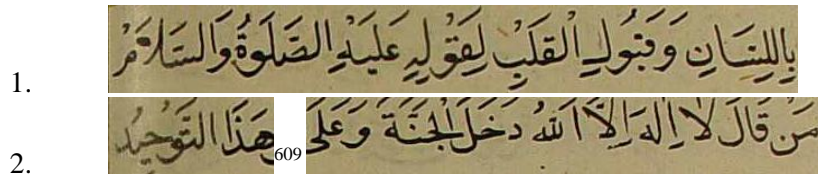 1. بِاللِّسَانِ وَقَبُولِ الْقَلْبِ لِقَوْلِهِ عَلَيْهِ الصَّلَوةُ وَالسَّلَامُ
2. مَنْ قَالَ لَا اِلٰهَ اِلَّا اللّٰهُ دَخَلَ الْجَنَّةَ وَعَلَى 609 هَذَا التَّوْحِيدُ